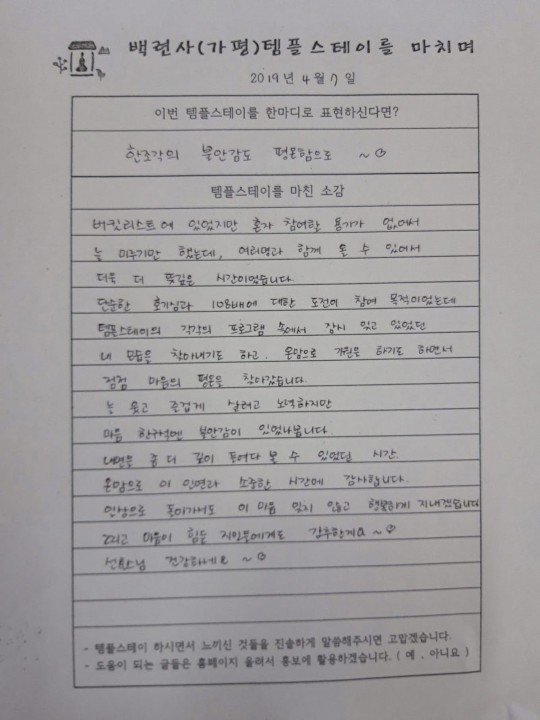 백련사(가평)템플스테이를 마치며
2019년 4월 7일
이번 템플스테이를 한마디로 표현하신다면?
한조각의 불안감도 평온함으로 ~
템플스테이를 마친 소감
버킷리스트에 있었지만 혼자 참여할 용기가 없어서
늘 미루기만 했는데, 여러명과 함께 올 수 있어서
더욱 더 뜻깊은 시간이었습니다.
단순한 호기심과 108배에 대한 도전이 참여 목적이었는데
템플스테이의 각각의 프로그램 속에서 잠시 잊고 있었던
내 모습을 찾아내기도 하고, 온맘으로 기원을 하기도 하면서
점점 마음의 평온을 찾아갔습니다.
늘 웃고 즐겁게 살려고 노력하지만
마음 한구석엔 불안감이 있었나봅니다.
내면을 좀 더 깊이 들여다 볼 수 있었던 시간.
온맘으로 이 인연과 소중한 시간에 감사합니다.
일상으로 돌아가서도 이 마음 잊지 않고 행복하게 지내겠습니다
그리고 마음이 힘든 지인분에게도 강추할게요 ~
스님 건강하세요 ~
- 템플스테이 하시면서 느끼신 것들을 진솔하게 말씀해주시면 고맙겠습니다.
- 도움이 되는 글들은 홈페이지 올려서 홍보에 활용하겠습니다. ( 예 , 아니요 )